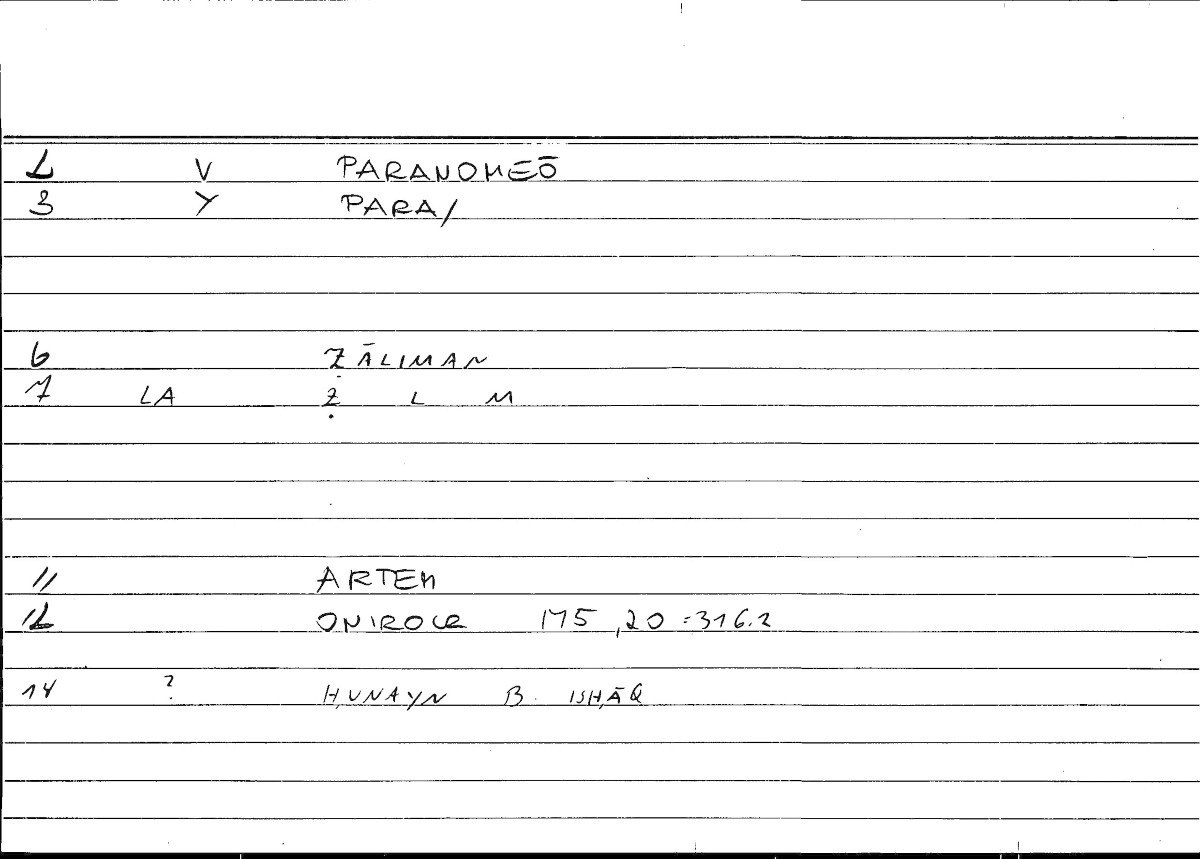 2 V PARANOMEŌ
3 Y PARA/
6 ẒĀLIMAN
7 LA Ẓ L M
11 ARTEM
12 ONIROCR 175,20=316.2
14 ? ḤUNAYN B. ISḤĀQ